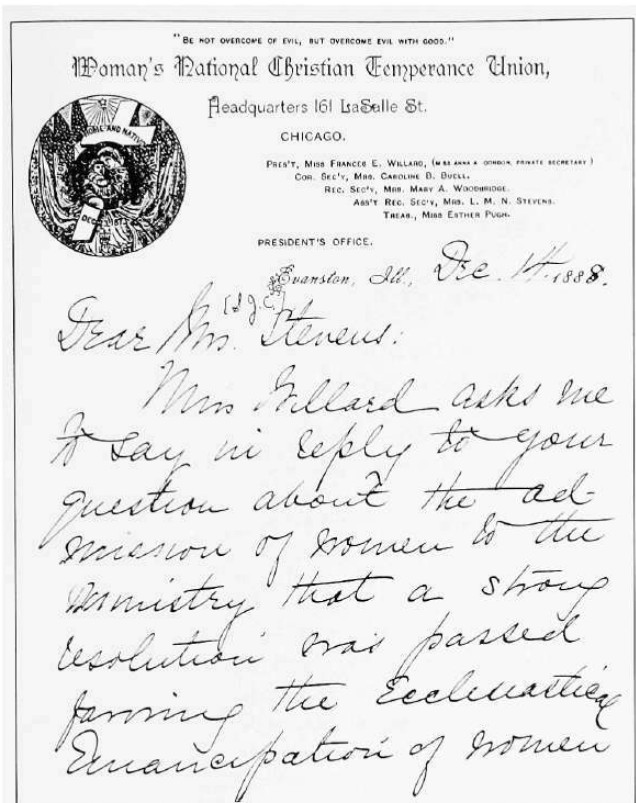 "BE NOT OVERCOME OF EVIL, BUT OVERCOME EVIL WITH GOOD."
Woman's National Christian Temperance Union,
Headquarters 161 LaSalle St.
CHICAGO.
PRES'T, MISS FRANCES E. WILLARD, (MISS ANNA A. GORDON, PRIVATE SECRETARY)
COR. SEC'Y, MRS. CAROLINE B. BUELL.
REC. SEC'Y, MRS. MARY A. WOODBRIDGE.
ASS'T REC. SEC'Y, MRS. L. M. N. STEVENS.
TREAS., MISS ESTHER PUGH.
PRESIDENT'S OFFICE.
Evanston, Ill., Dec. 14, 1888.
Dear Mrs. Stevens:
Miss Willard asks me
to say in reply to your
question about the ad-
mission of women to the
ministry that a strong
resolution was passed
favoring the Ecclesiastical
Emancipation of women